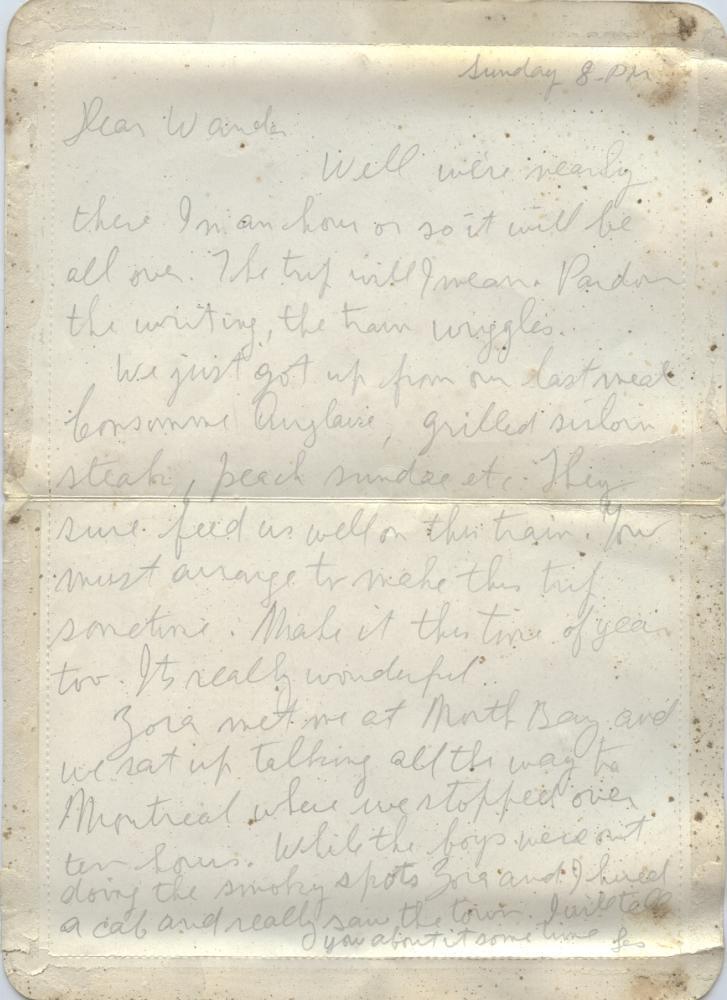 Sunday 8 PM
Dear Wanda
Well we're nearly
there In an hour or so it will be
all over. The trip will I mean. Pardon
the writing, the train wiggles.
We just got up from our last meal
Consomme Anglaise, grilled sirloin
steak, peach sundae etc. They
sure feed us well on this train. You
must arrange to make this trip
sometime. Make it this time of year
too. Its really wonderful.
Zora met me at North Bay and
we sat up talking all the way to
Montreal where we stopped over
ten hours. While the boys were out
doing the smoky spots Zora and I hired
a cab and really saw the town. I will tell
you about it some time Les